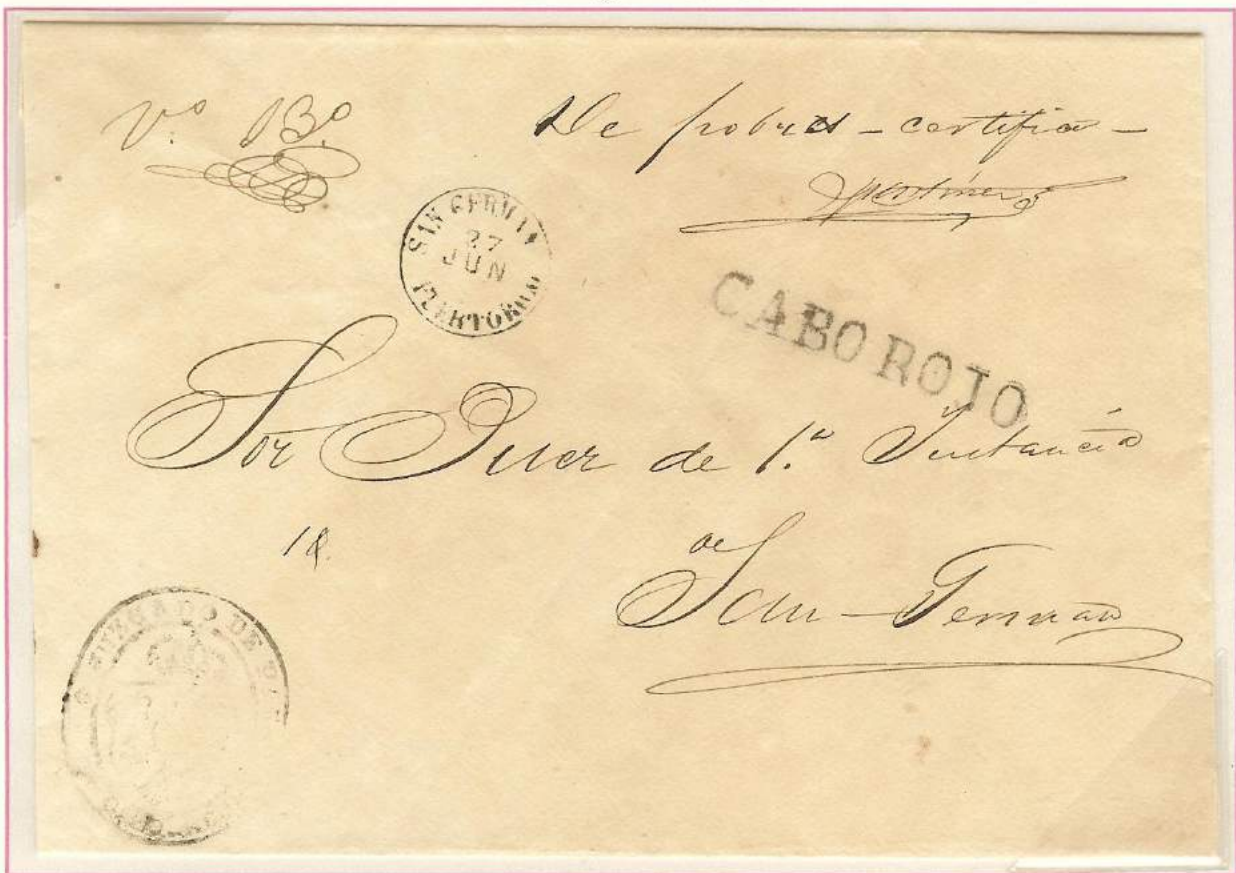 Vº Bº
De pobres - certifico -
SAN GERMAN
27
JUN
PUERTO RICO
CABO ROJO
Sor Juez de 1ª Instancia
de
San-German
JUZGADO DE